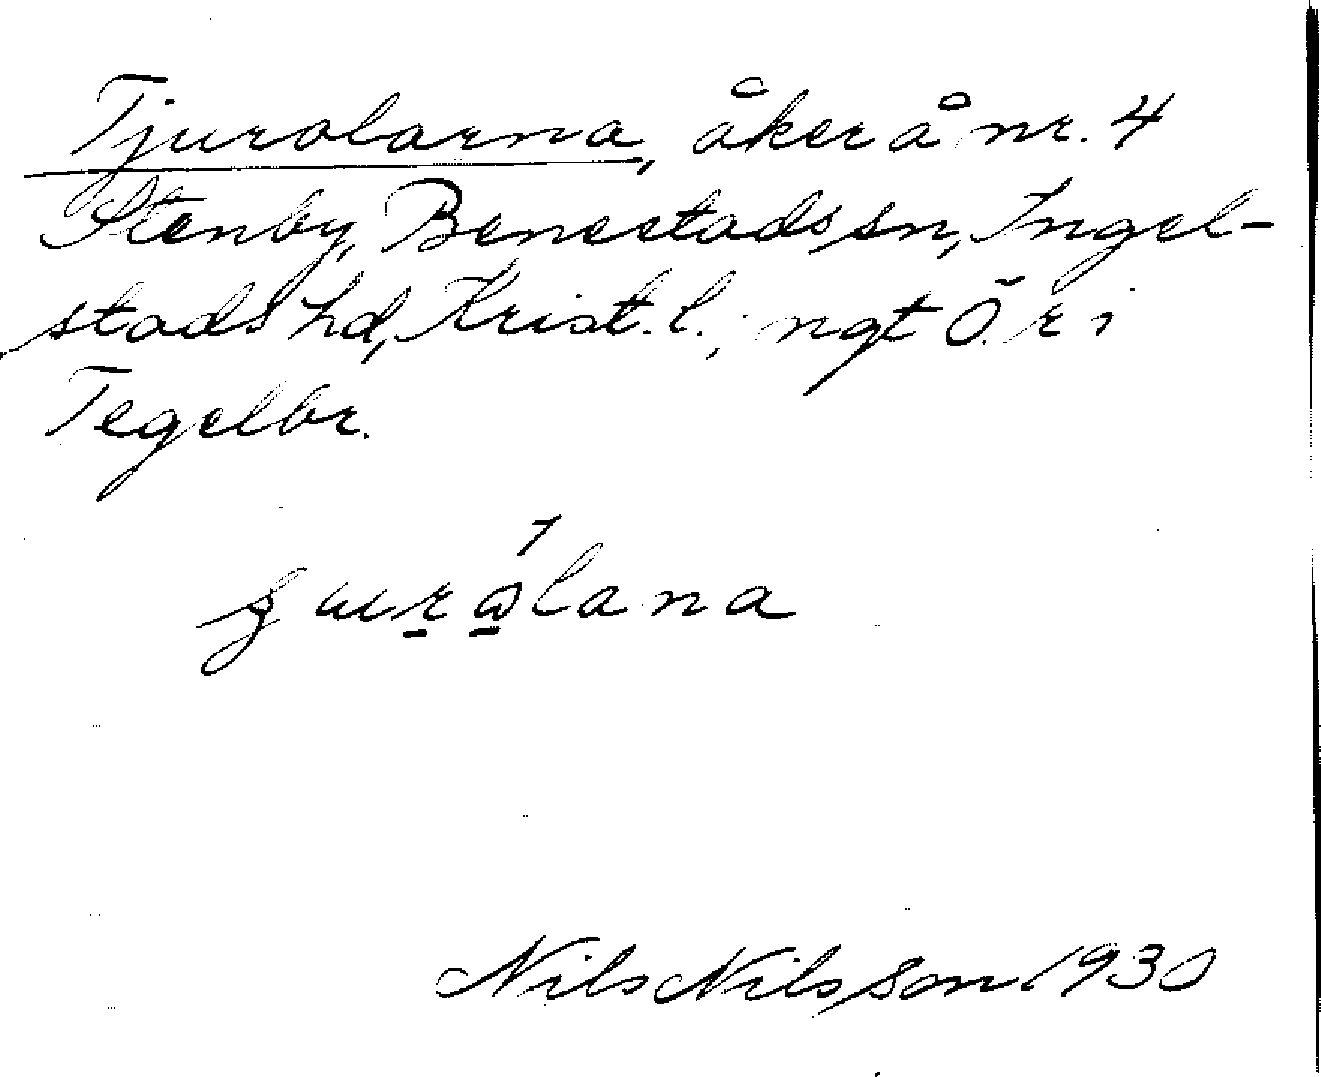 Tjurolarna, åker å nr. 4
Stenby, Benestads sn, Ingel-
stads hd, Krist. l.; ngt Ö. r i
Tegelbr.
Nils Nilsson 1930